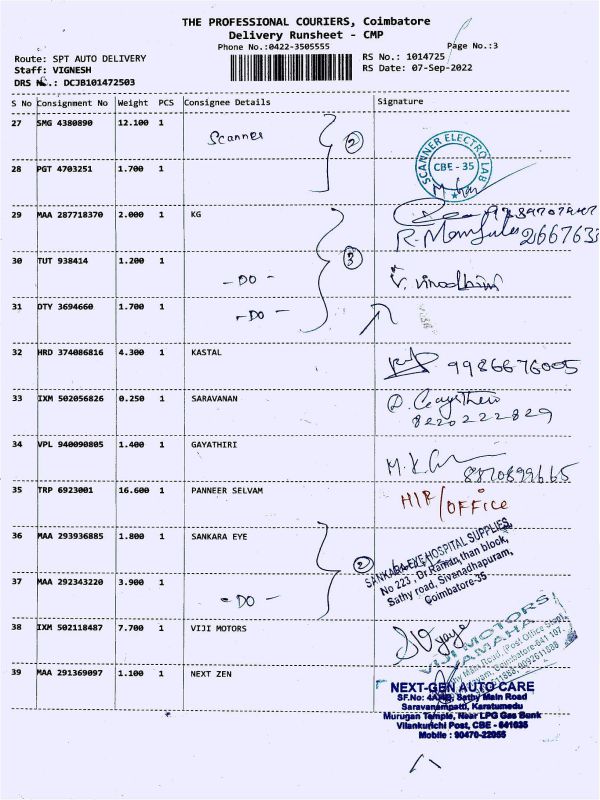 THE PROFESSIONAL COURIERS, Coimbatore
Delivery Runsheet - CMP
Phone No.:0422-3505555
Page No.:3
Route: SPT AUTO DELIVERY
RS No.: 1014725
Staff: VIGNESH
RS Date: 07-Sep-2022
DRS No.: DCJB101472503
S No Consignment No Weight PCS Consignee Details Signature
27 SMG 4380890 12.100 1 Scanner 2
SCANNER ELECTRO LAB
CBE - 35
28 PGT 4703251 1.700 1
29 MAA 287718370 2.000 1 KG
2667633
30 TUT 938414 1.200 1 - DO - 3
31 OTY 3694660 1.700 1 - DO -
32 HRD 374086816 4.300 1 KASTAL 9986676005
33 IXM 502056826 0.250 1 SARAVANAN
8220222829
34 VPL 940090805 1.400 1 GAYATHIRI 8870899665
35 TRP 6923001 16.600 1 PANNEER SELVAM HIR/OFFICE
36 MAA 293936885 1.800 1 SANKARA EYE 2
SANKARA EYE HOSPITAL SUPPLIES,
No 223, Dr.Raman than block,
Sathy road, Sivanadhapuram,
Coimbatore-35
37 MAA 292343220 3.900 1 - DO -
38 IXM 502118487 7.700 1 VIJI MOTORS
VIJI MOTORS
YAMAHA
39 MAA 291369097 1.100 1 NEXT ZEN
NEXT-GEN AUTO CARE
Sathy Main Road
Saravanampatti, Karatumedu
Murugan Temple, Near LPG Gas Bunk
Vilankurichi Post, CBE - 641035
Mobile : 90470-22055